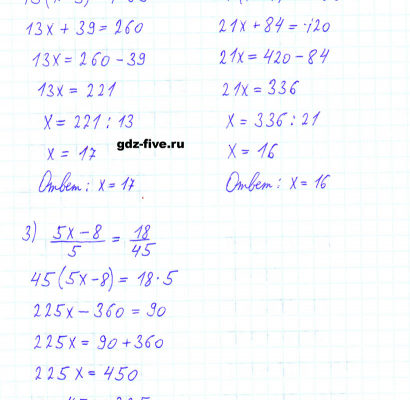 13x + 39 = 260
13x = 260 - 39
13x = 221
x = 221 : 13
x = 17
Ответ: x = 17
21x + 84 = 420
21x = 420 - 84
21x = 336
x = 336 : 21
x = 16
Ответ: x = 16
gdz-five.ru
3) (5x - 8)/5 = 18/45
45(5x - 8) = 18 · 5
225x - 360 = 90
225x = 90 + 360
225x = 450